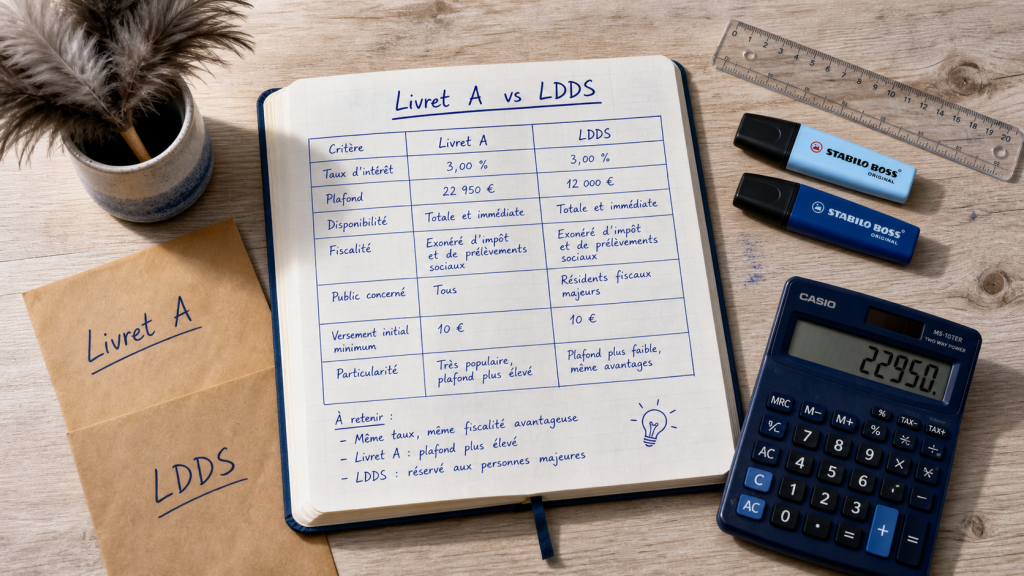 Livret A vs LDDS
Critère Livret A LDDS
Taux d'intérêt 3,00 % 3,00 %
Plafond 22 950 € 12 000 €
Disponibilité Totale et immédiate Totale et immédiate
Fiscalité Exonéré d'impôt Exonéré d'impôt
et de prélèvements et de prélèvements
sociaux sociaux
Public concerné Tous Résidents fiscaux
majeurs
Versement initial 10 € 10 €
minimum
Particularité Très populaire, Plafond plus faible,
plafond plus élevé même avantages
À retenir :
- Même taux, même fiscalité avantageuse
- Livret A : plafond plus élevé
- LDDS : réservé aux personnes majeures
Livret A
LDDS
0 1 2 3 4 5 6 7 8 9 10 11 12 13 14 15 16 17 18 19 20
STABILO BOSS
ORIGINAL
STABILO BOSS
ORIGINAL
CASIO
MS-10TER
TWO WAY POWER
22950.
MRC M- M+ % TAX- TAX+
7 8 9 %
AC 4 5 6 × ÷
C 1 2 3 −
AC 0 · = + =